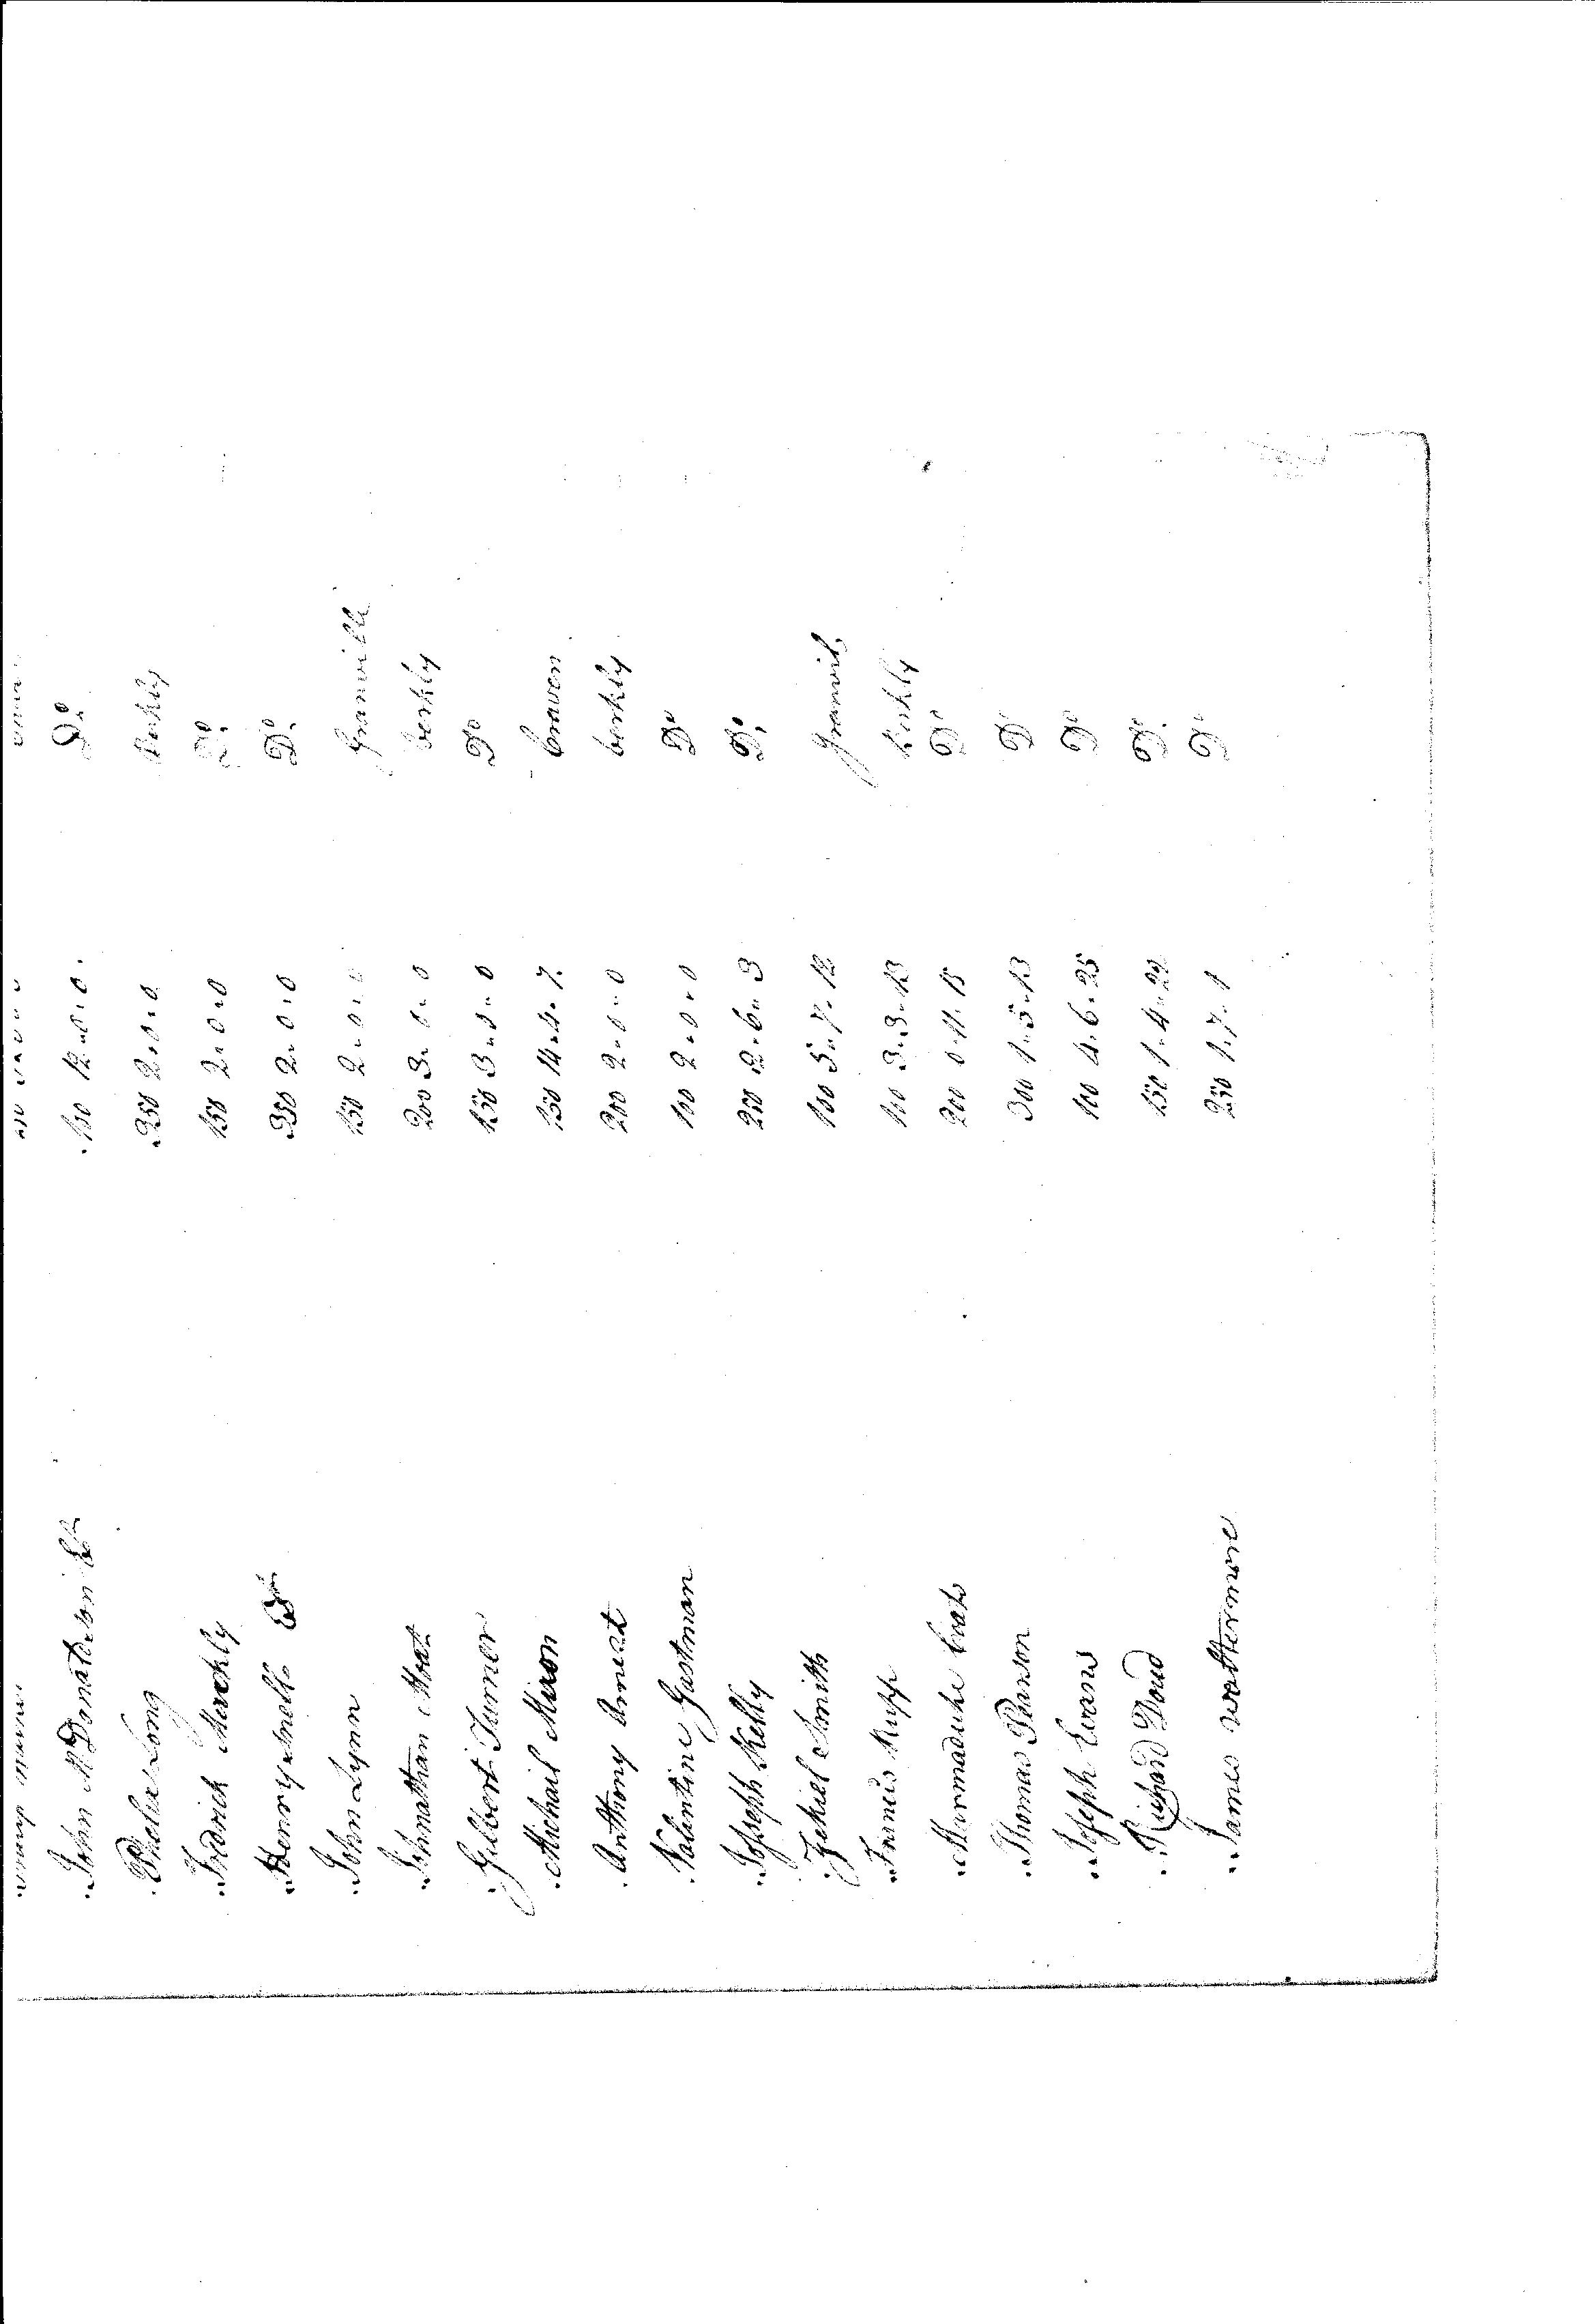 John McDonaldson 100 12 " 0 " 0 . Do.
Phelix Long 350 2 " 0 " 0 Berkly
Fredrick Merckly 150 2 " 0 " 0 Do.
Henry Snell 350 2 " 0 " 0 Do.
John Lynn 150 2 " 0 " 0 Granville
Johnathan 200 3 " 0 " 0 berkly
Gilbert Turner 150 3 " 0 " 0 Do
Michail Mixon 150 14 " 4 " 7. Craven
Anthony 200 2 " 0 " 0 berkly
Valentine Gastman 100 2 " 0 " 0 Do
Joseph Kelly 250 12 " 6 " 3 Do.
Zekiel Smith 100 5 " 7 " 12 Granvil
Francis Rupp 100 3 " 3 " 13 Berkly
Marmaduke Coats 200 0 " 11 " 15 Do
Thomas Pearson 300 1 " 5 " 13 Do
Joseph Evans 100 4 " 6 " 25 Do
Richard Doud 150 1 " 4 " 22 Do.
James wattermore 250 1 " 7 " 1 Do